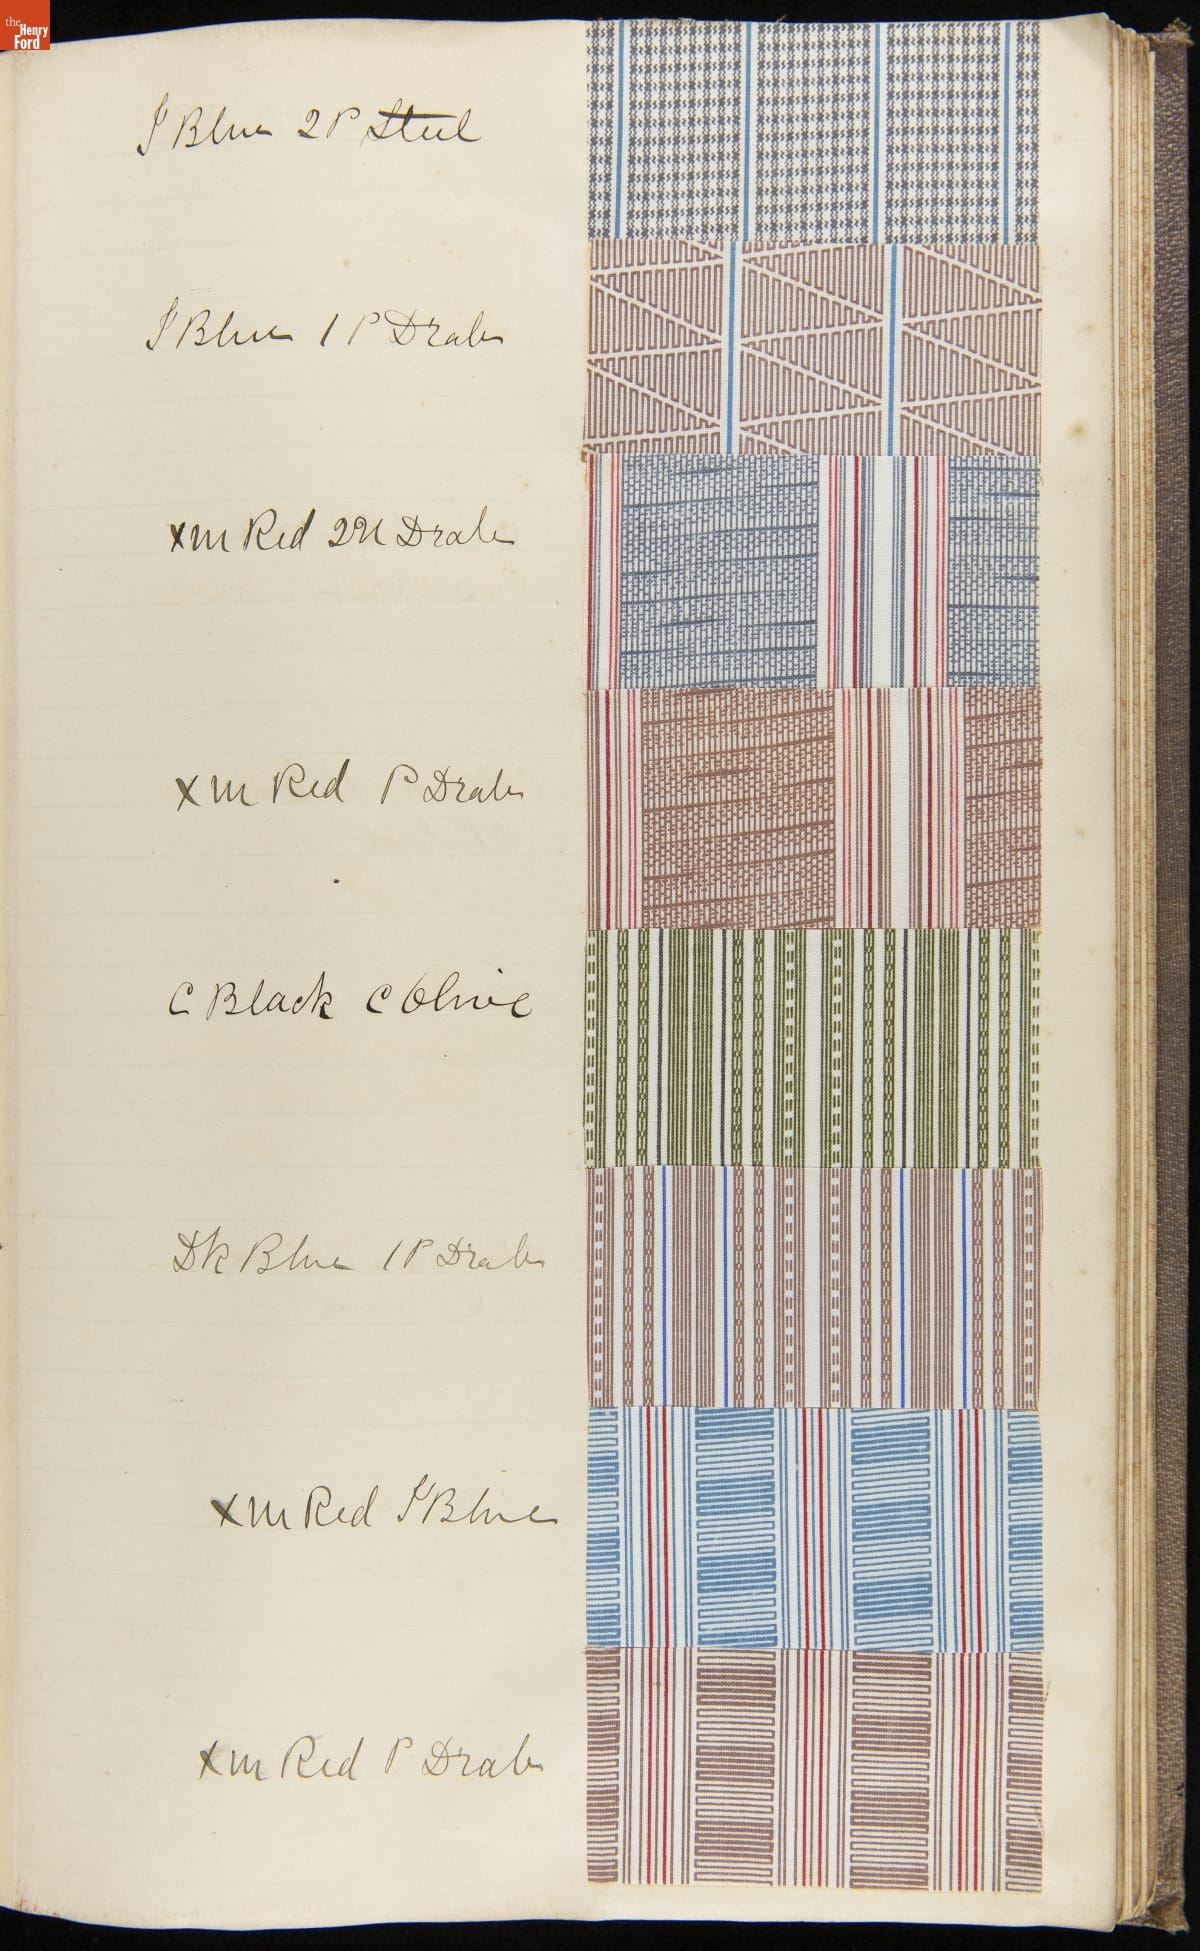 the
Henry
Ford
J Blue 2P Steel
J Blue 1 P Drab
xm Red 2N Drab
xm Red P Drab
C Black C Olive
Dk Blue 1P Drab
xm Red J Blue
xm Red P Drab